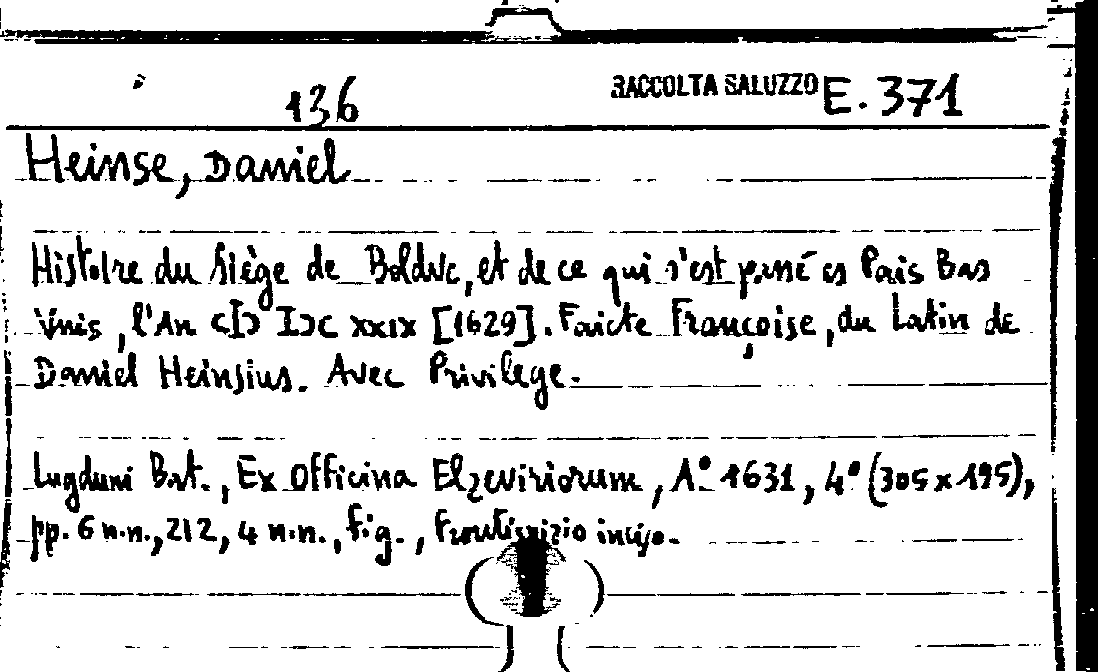 136 RACCOLTA SALUZZO E. 371
Heinse, Daniel
Histoire du Siège de Bolduc, et de ce qui s'est passé es Pais Bas
Vnis, l'An cIɔ Iɔc xxix [1629]. Faicte Françoise, du Latin de
Daniel Heinsius. Avec Privilege.
Lugduni Bat., Ex Officina Elzeviriorum, A° 1631, 4° (305x195),
pp. 6 n.n., 212, 4 n.n., fig., frontispizio inciso.